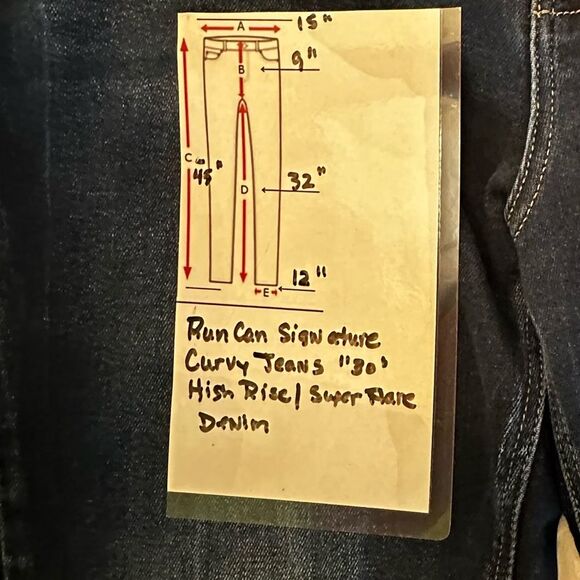 A 15"
B 9"
C 45"
D 32"
E 12"
Run Can Signature
Curvy Jeans "30'
High Rise/ Super Flare
Denim